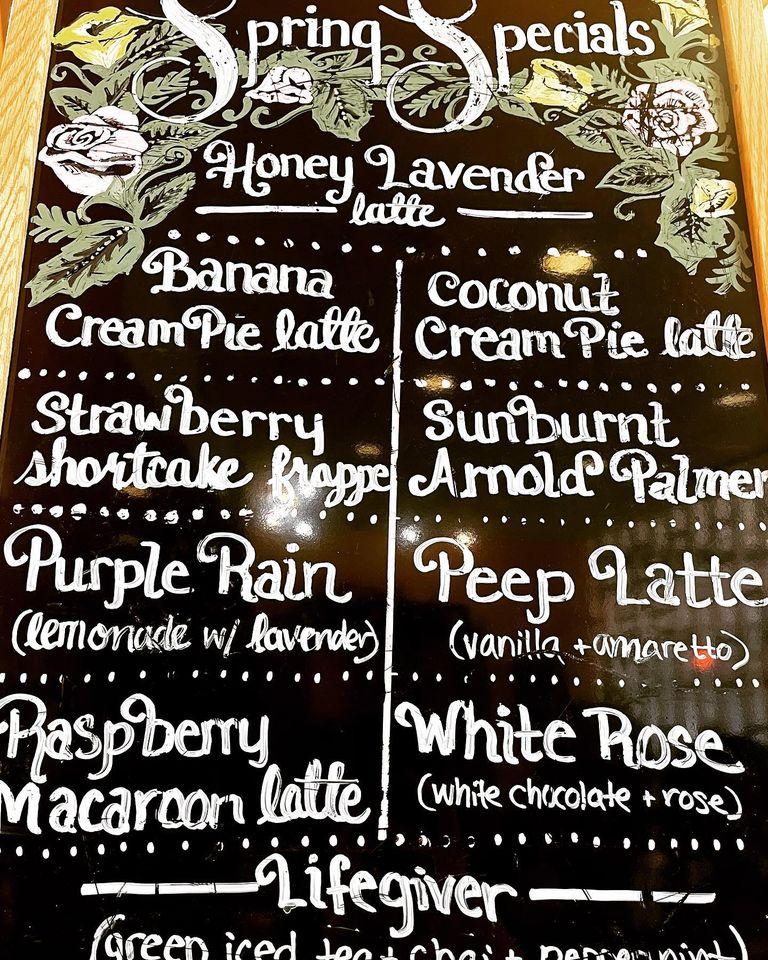 Spring Specials
Honey Lavender
latte
Banana
Cream Pie latte
Coconut
Cream Pie latte
Strawberry
shortcake frappe
Sunburnt
Arnold Palmer
Purple Rain
(lemonade w/ lavender)
Peep Latte
(vanilla + amaretto)
Raspberry
Macaroon latte
White Rose
(white chocolate + rose)
Lifegiver
(green iced tea + chai + peppermint)